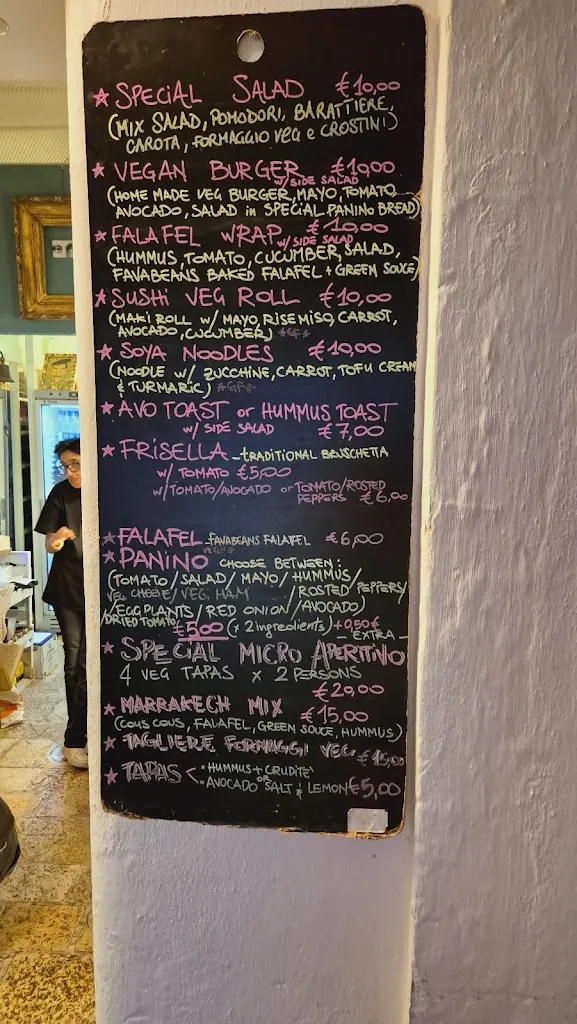 ★ SPECIAL SALAD €10,00
(MIX SALAD, POMODORI, BARATTIERE,
CAROTA, FORMAGGIO VEG e CROSTINI)
★ VEGAN BURGER €10,00
W/ SIDE SALAD
(HOME MADE VEG BURGER, MAYO, TOMATO
AVOCADO, SALAD in SPECIAL PANINO BREAD)
★ FALAFEL WRAP €10,00
W/ SIDE SALAD
(HUMMUS, TOMATO, CUCUMBER, SALAD,
FAVABEANS BAKED FALAFEL + GREEN SOUCE)
★ SUSHI VEG ROLL €10,00
(MAKI ROLL W/ MAYO, RISE MISO, CARROT,
AVOCADO, CUCUMBER) *GF*
★ SOYA NOODLES €10,00
(NOODLE W/ ZUCCHINE, CARROT, TOFU CREAM
& TURMARIC) *GF*
★ AVO TOAST or HUMMUS TOAST
W/ SIDE SALAD €7,00
★ FRISELLA - TRADITIONAL BRUSCHETTA
W/ TOMATO €5,00
W/ TOMATO/AVOCADO or TOMATO/ROSTED
PEPPERS €6,00
★ FALAFEL - FAVABEANS FALAFEL €6,00
*GF*
★ PANINO CHOOSE BETWEEN:
(TOMATO / SALAD / MAYO / HUMMUS /
VEG CHEESE / VEG HAM / ROSTED PEPPERS /
/ EGG PLANTS / RED ONION / AVOCADO)
DRIED TOMATO €5,00 (+ 2 ingredients) + 0,50€
- EXTRA -
★ SPECIAL MICRO APERITIVO
4 VEG TAPAS x 2 PERSONS
€20,00
★ MARRAKECH MIX €15,00
(COUS COUS, FALAFEL, GREEN SOUCE, HUMMUS)
★ TAGLIERE FORMAGGI VEG €15,00
★ TAPAS < • HUMMUS + CRUDITE'
OR
• AVOCADO SALT & LEMON €5,00